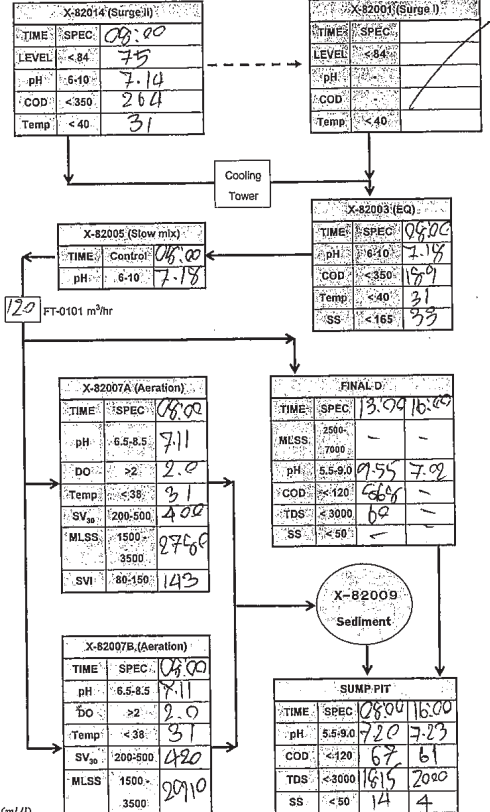 X-82014 (Surge II)
TIME SPEC 08:00
LEVEL <84 75
pH 6-10 7.14
COD <350 264
Temp <40 31
X-82001 (Surge I)
TIME SPEC
LEVEL <84
pH -
COD -
Temp <40
Cooling
Tower
X-82003 (EQ)
TIME SPEC 08:00
pH 6-10 7.18
COD <350 189
Temp <40 31
SS <165 33
X-82005 (Slow mix)
TIME Control 08:00
pH 6-10 7.18
120 FT-0101 m³/hr
X-82007A (Aeration)
TIME SPEC 08:00
pH 6.5-8.5 7.11
DO >2 2.0
Temp <38 31
SV30 200-500 400
MLSS 1500-3500
SVI 80-150 143
FINAL D
TIME SPEC 13:00 16:00
MLSS 2500-7000 - -
pH 5.5-9.0 9.55 7.02
COD <120 -
TDS <3000 60 -
SS <50 - -
X-82009
Sediment
X-82007B (Aeration)
TIME SPEC 08:00
pH 6.5-8.5 7.11
DO >2 2.0
Temp <38 31
SV30 200-500 420
MLSS 1500-3500 2910
SUMP PIT
TIME SPEC 08:00 16:00
pH 5.5-9.0 7.20 7.23
COD <120 67 61
TDS <3000 1815 2000
SS <50 14 4
(ml/l)